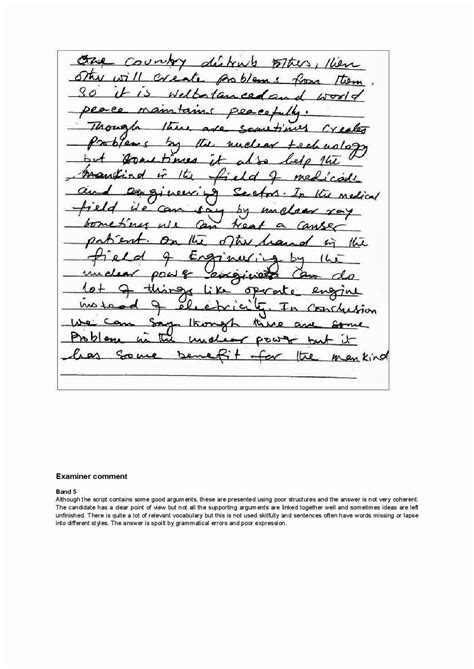 One country distrub others, then
other will create problems from them.
So it is welbalanced and world
peace maintains peacefully.
Though there are sometimes creates
problems by the nuclear technology
but sometimes it also help the
mankind in the field of medicals
and engineering sectors. In the medical
field we can say by nuclear ray
sometimes we can treat a canser
patient. On the other hand in the
field of Engineering by the
nuclear power engineers can do
lot of things like operate engine
instead of electricity. In conclusion
we can say though there are some
problem in the nuclear power but it
has some benefit for the mankind
Examiner comment
Band 5
Although the script contains some good arguments, these are presented using poor structures and the answer is not very coherent.
The candidate has a clear point of view but not all the supporting arguments are linked together well and sometimes ideas are left
unfinished. There is quite a lot of relevant vocabulary but this is not used skilfully and sentences often have words missing or lapse
into different styles. The answer is spoilt by grammatical errors and poor expression.